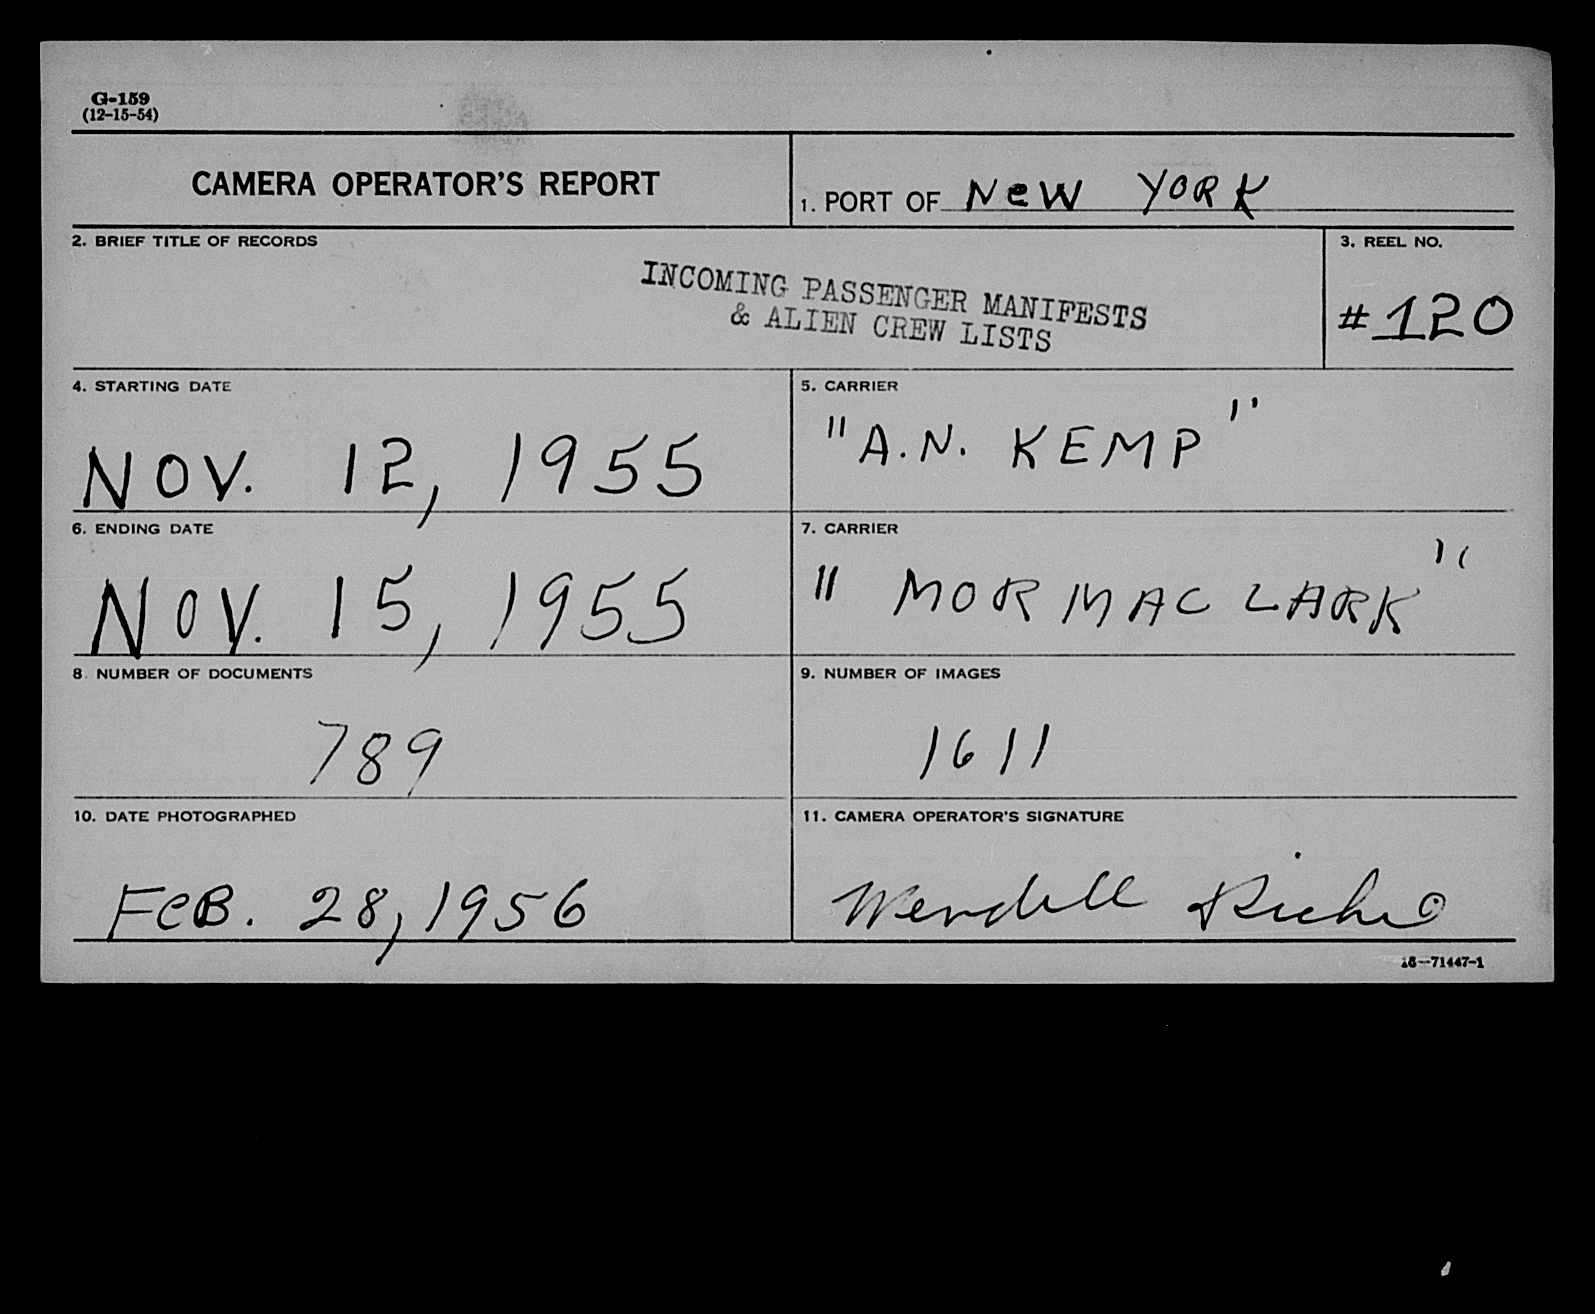 G-159
(12-15-54)
CAMERA OPERATOR'S REPORT
1. PORT OF NeW YORK
2. BRIEF TITLE OF RECORDS
INCOMING PASSENGER MANIFESTS
& ALIEN CREW LISTS
3. REEL NO.
# 120
4. STARTING DATE
NOV. 12, 1955
5. CARRIER
"A.N. KEMP"
6. ENDING DATE
NOV. 15, 1955
7. CARRIER
" MORMAC LARK "
8. NUMBER OF DOCUMENTS
789
9. NUMBER OF IMAGES
1611
10. DATE PHOTOGRAPHED
FeB. 28, 1956
11. CAMERA OPERATOR'S SIGNATURE
Wendell
16-71447-1